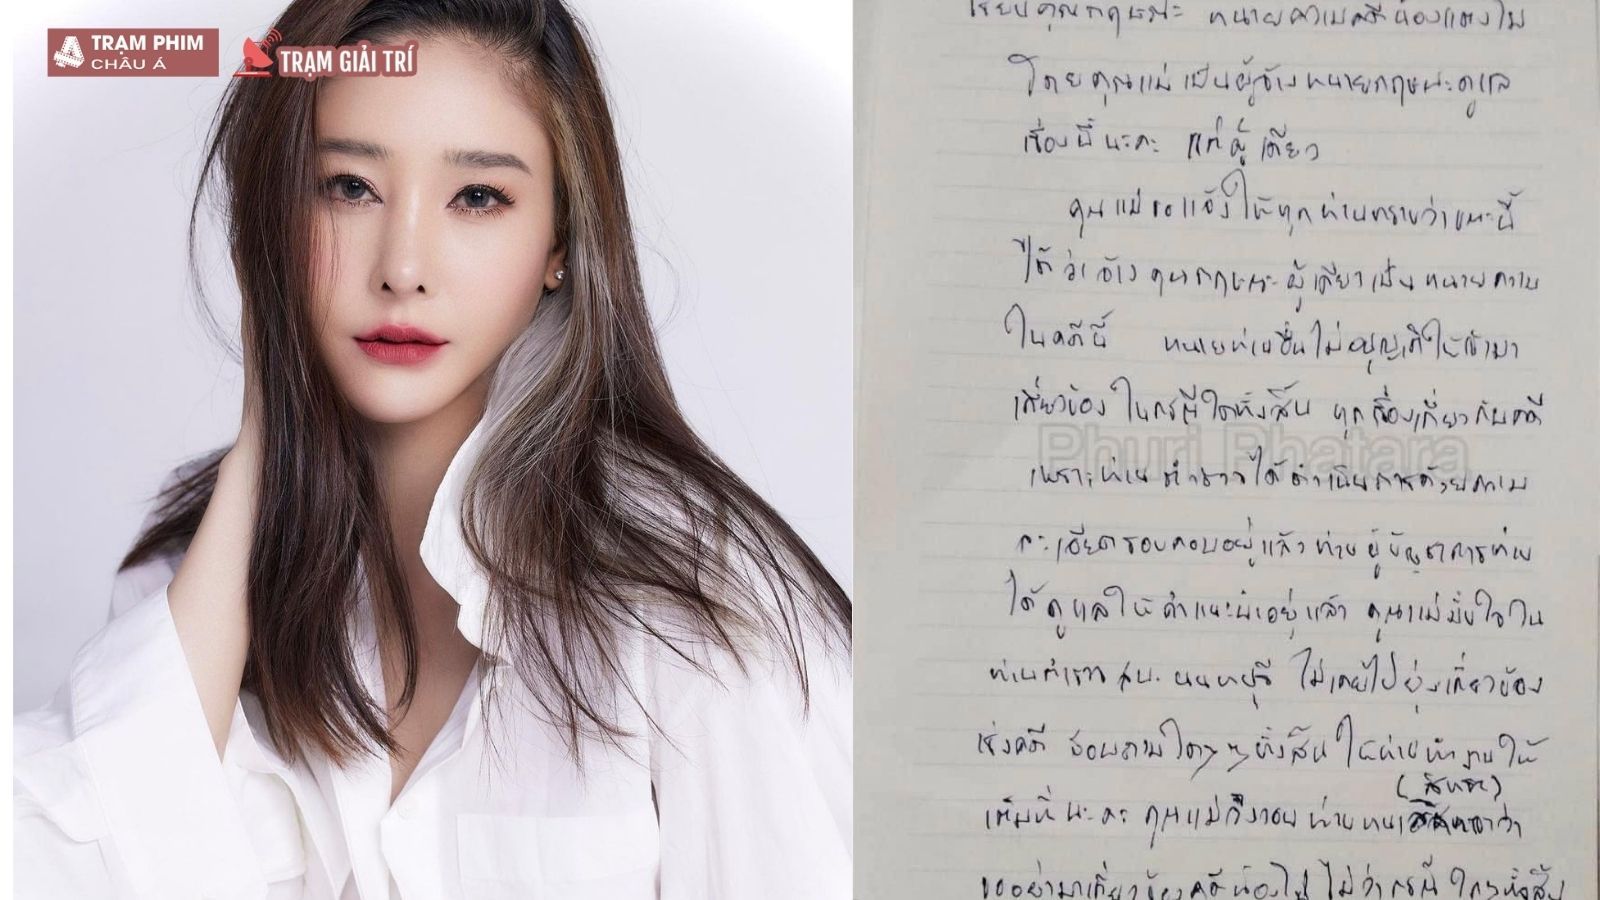 TRẠM PHIM
CHÂU Á
TRẠM GIẢI TRÍ
เรียนคุณกฤษณะ ทนายความคดีน้องแตงโม
โดยคุณแม่เป็นผู้จ้างทนายกฤษณะดูแล
เรื่องนี้นะคะ แต่ผู้เดียว
คุณแม่ขอแจ้งให้ทุกท่านทราบว่าขณะนี้
ได้ว่าจ้างคุณกฤษณะผู้เดียวเป็นทนายความ
ในคดีนี้ ทนายท่านอื่นไม่อนุญาติให้เข้ามา
เกี่ยวข้องในกรณีใดทั้งสิ้น ทุกเรื่องเกี่ยวกับคดี
Phuri Phatara
เพราะท่านตำรวจได้ดำเนินการด้วยความ
ละเอียดรอบคอบอยู่แล้วท่านผู้บัญชาการท่าน
ได้ดูแลให้คำแนะนำอยู่แล้ว คุณแม่มั่นใจใน
ท่านตำรวจ นนทบุรี ไม่เคยไปยุ่งเกี่ยวข้อง
เรื่องคดี สอบถามใดๆๆทั้งสิ้น ให้ท่านทำงานให้
เต็มที่นะคะ คุณแม่จึง ท่าน ว่า
(สิทธะ)
ขออย่ามาเกี่ยวข้องคดีน้องโม ไม่ว่ากรณีใดๆทั้งสิ้น